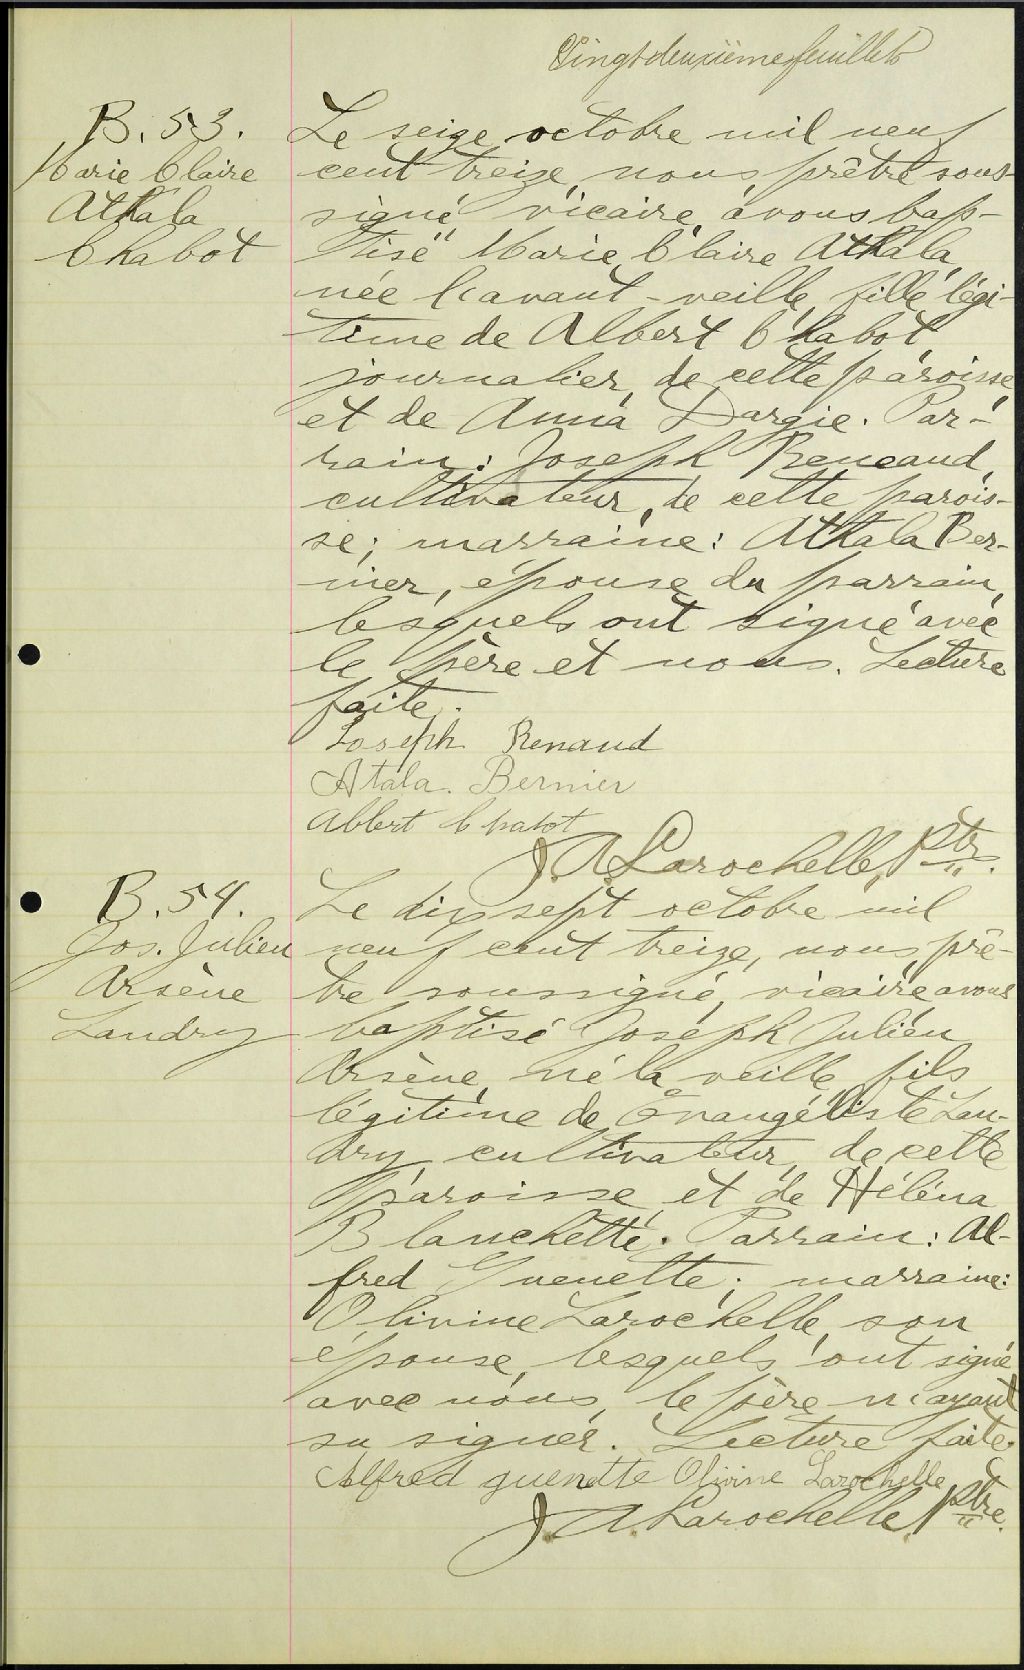 Vingt deuxième feuillet
B. 53.
Marie Claire
Athala
Chabot
Le seize octobre mil neuf
cent treize, nous, prêtre sous-
signé, vicaire, avons bap-
tisé Marie Claire Athala,
née l'avant-veille, fille légi-
time de Albert Chabot
journalier, de cette paroisse,
et de Anna Dargie. Par-
rain: Joseph Reneaud,
cultivateur, de cette parois-
se; marraine: Athala Ber-
nier, épouse du parrain,
lesquels ont signé avec
le père et nous. Lecture
faite.
Joseph Renaud
Atala Bernier
Albert Chabot
J. A. Larochelle, Ptre.
B. 54.
Jos. Julien
Arsène
Landry
Le dix sept octobre mil
neuf cent treize, nous, prê-
tre soussigné, vicaire, avons
baptisé Joseph Julien
Arsène, né la veille, fils
légitime de Évangéliste Lan-
dry, cultivateur, de cette
paroisse, et de Héléna
Blanchette. Parrain: Al-
fred Guenette; marraine:
Olivine Larochelle, son
épouse, lesquels ont signé
avec nous, le père n'ayant
su signer. Lecture faite.
Alfred guenette Olivine Larochelle
J. A. Larochelle, Ptre.